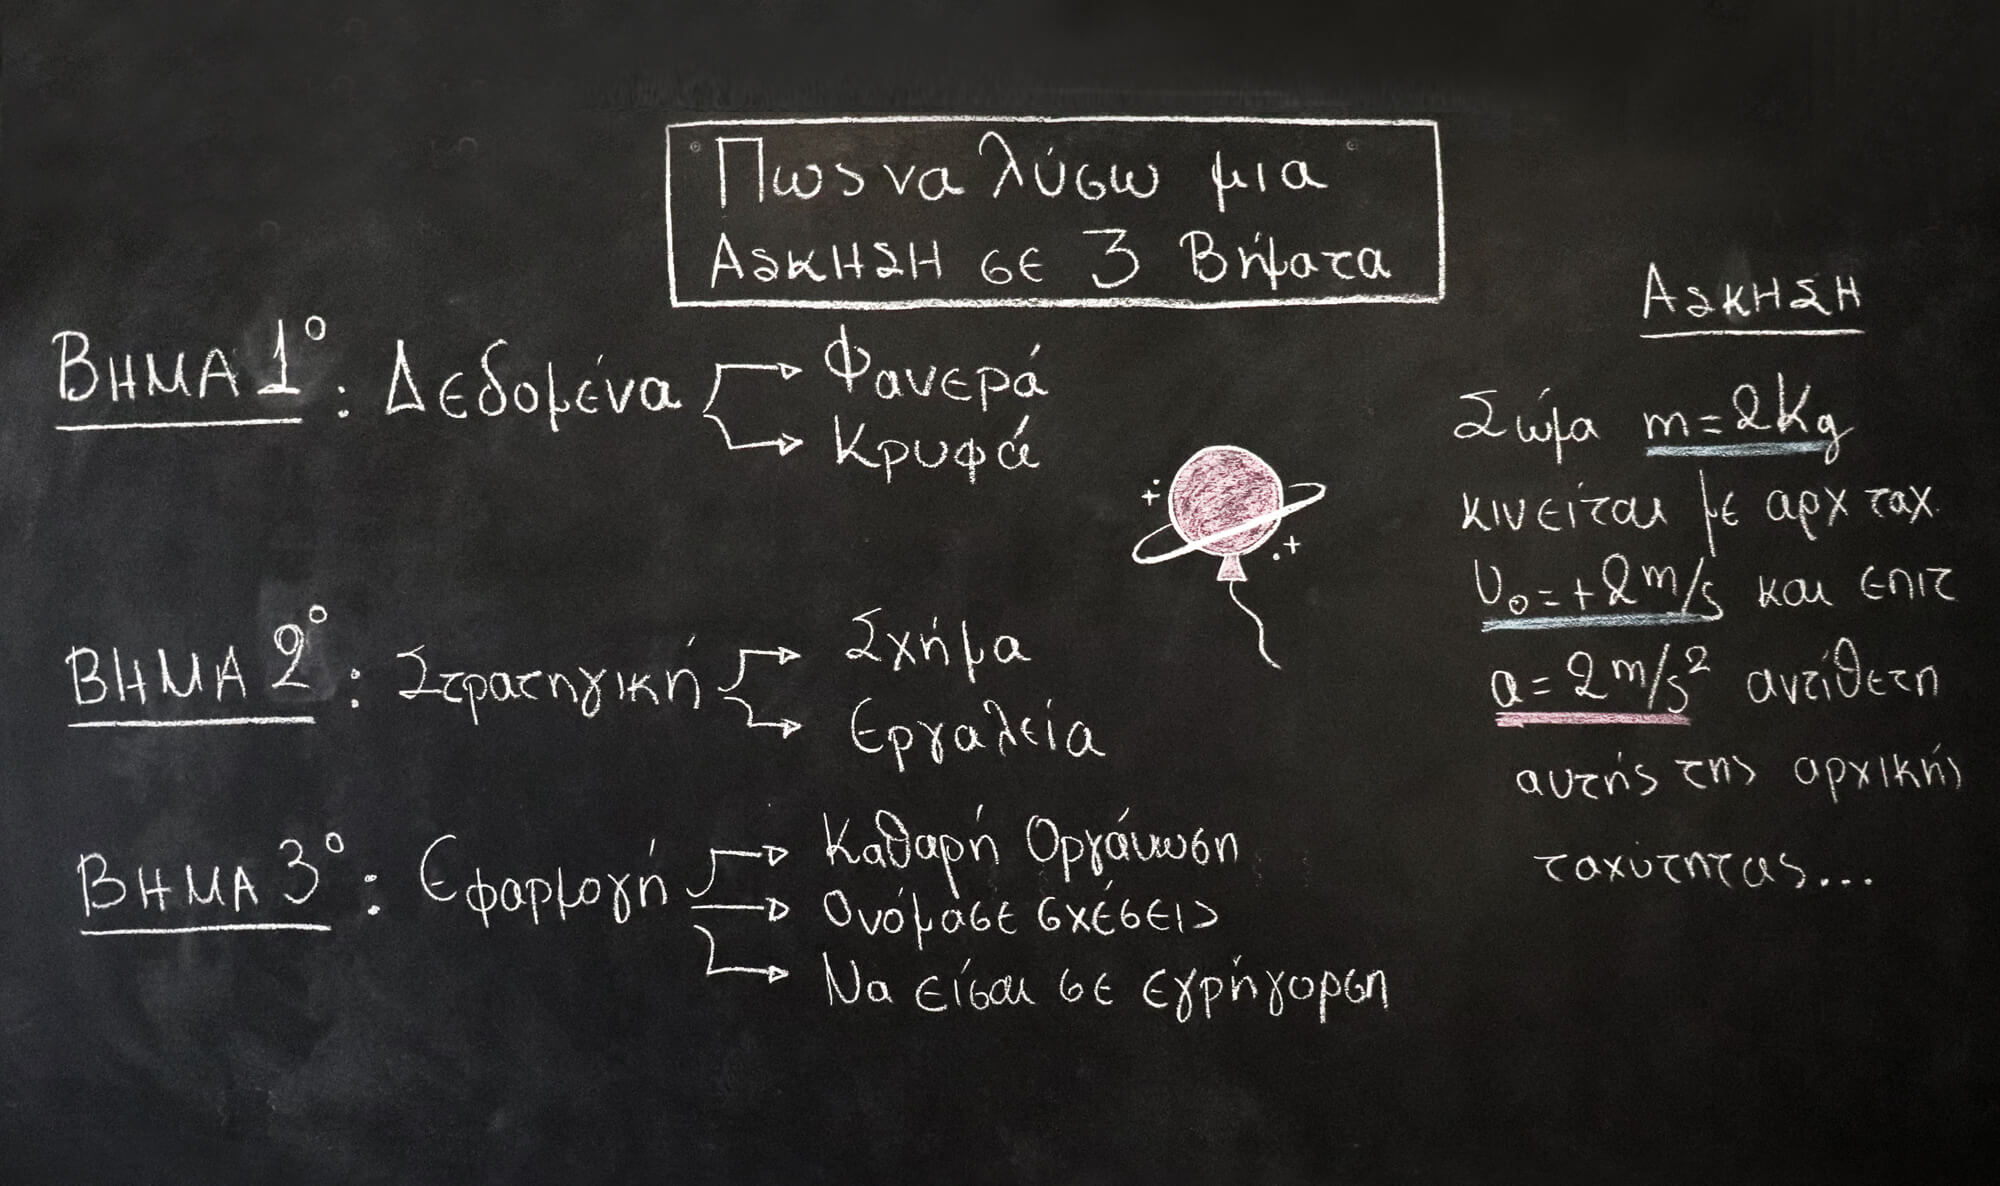 Πως να λύσω μια
ΑΣΚΗΣΗ σε 3 Βήματα
ΒΗΜΑ 1º: Δεδομένα
Φανερά
Κρυφά
ΒΗΜΑ 2º: Στρατηγική
Σχήμα
Εργαλεία
ΒΗΜΑ 3º: Εφαρμογή
Καθαρή Οργάνωση
Ονόμασε σχέσεις
Να είσαι σε εγρήγορση
ΑΣΚΗΣΗ
Σώμα m=2Kg
κινείται με αρχ ταχ.
υ₀=+2m/s και επιτ
α=2m/s² αντίθετη
αυτής της αρχικής
ταχύτητας...